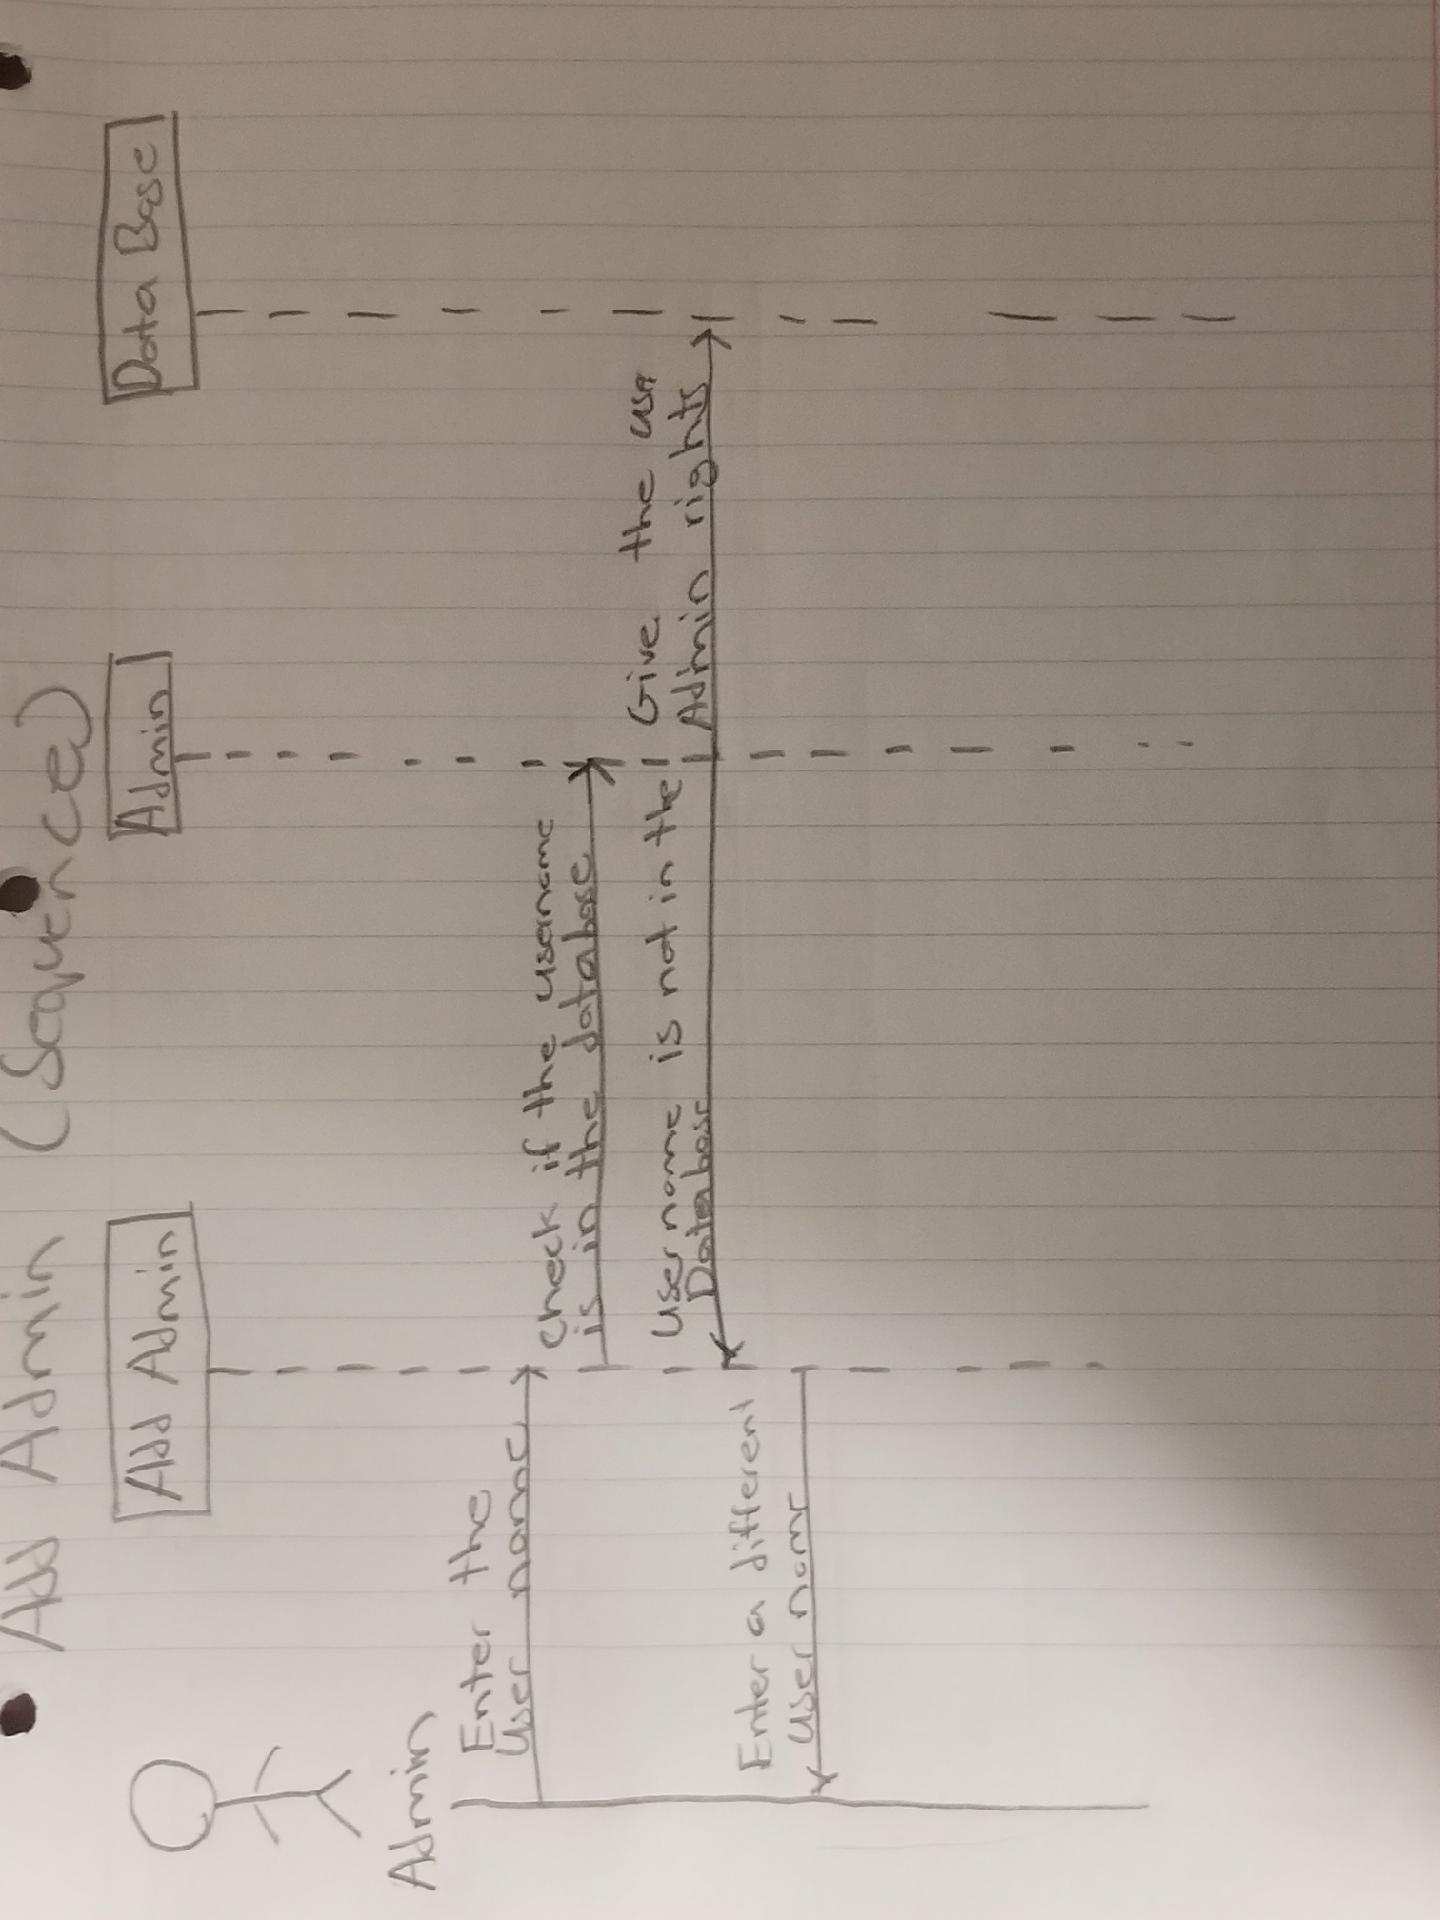 Add Admin (Sequence)
Add Admin
Admin
Data Base
Admin
Enter the
User name
check if the username
is in the database
User name is not in the
Database
Give the usr
Admin rights
Enter a different
User name